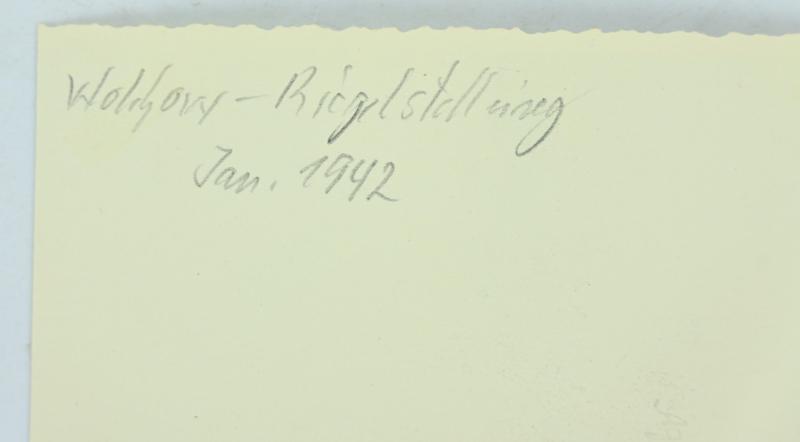 Wolchow - Riegelstellung
Jan. 1942